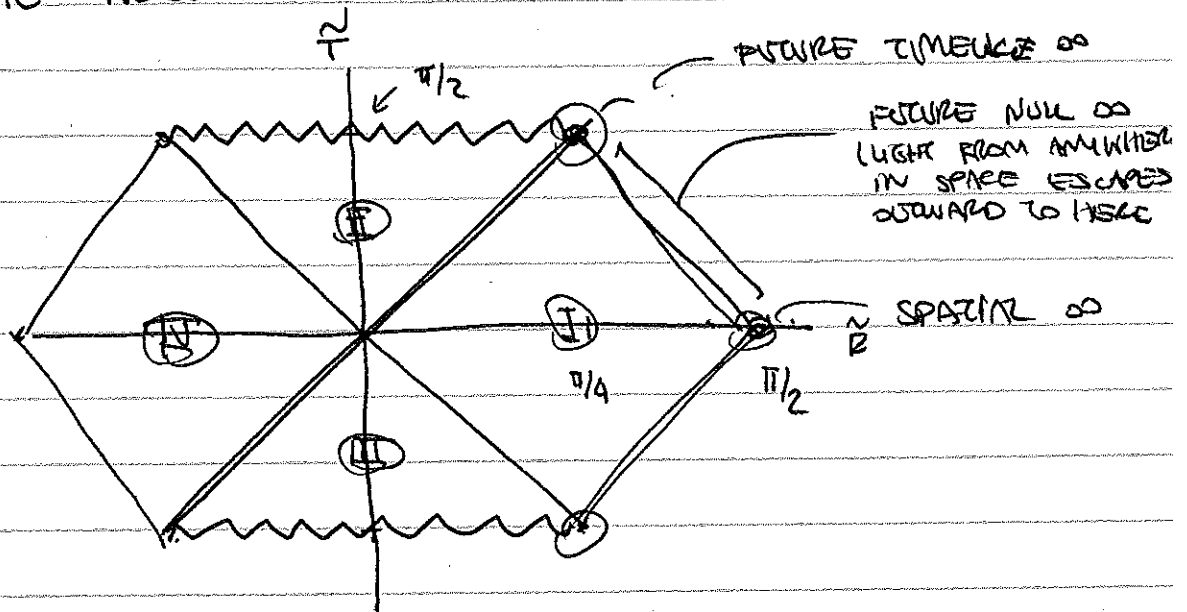 T̃
π/2
FUTURE TIMELIKE ∞
FUTURE NULL ∞
(LIGHT FROM ANYWHER
IN SPACE ESCAPES
OUTWARD TO HERE
II
IV
I
SPATIAL ∞
R̃
π/4
π/2
III